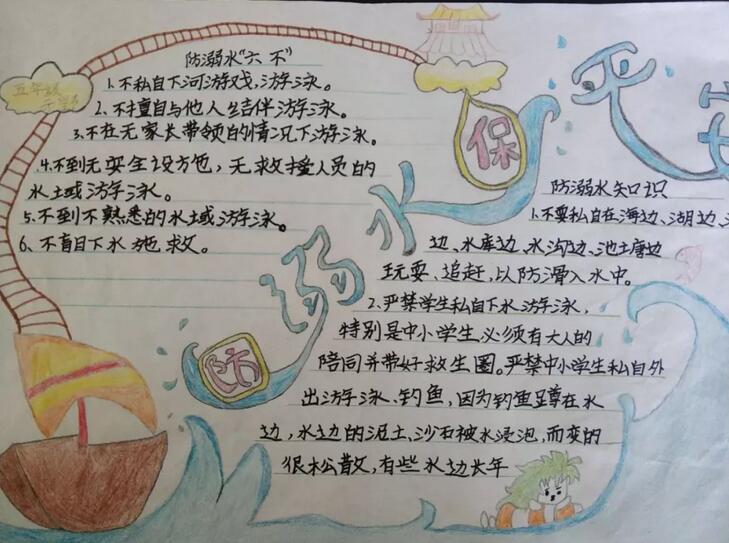 防溺水“六不”
1.不私自下河游戏，游泳。
2、不擅自与他人结伴游泳。
3.不在无家长带领的情况下游泳。
4.不到无安全设施，无救援人员的
水域游泳。
5.不到不熟悉的水域游泳。
6、不盲目下水施救。
防溺水
保平安
防溺水知识
1.不要私自在海边、湖边、
边、水库边、水沟边、池塘边
玩耍、追赶，以防滑入水中。
2、严禁学生私自下水游泳，
特别是中小学生必须有大人的
陪同并带好救生圈。严禁中小学生私自外
出游泳、钓鱼，因为钓鱼蹲在水
边，水边的泥土、沙石被水浸泡，而变的
很松散，有些水边长年
五年级